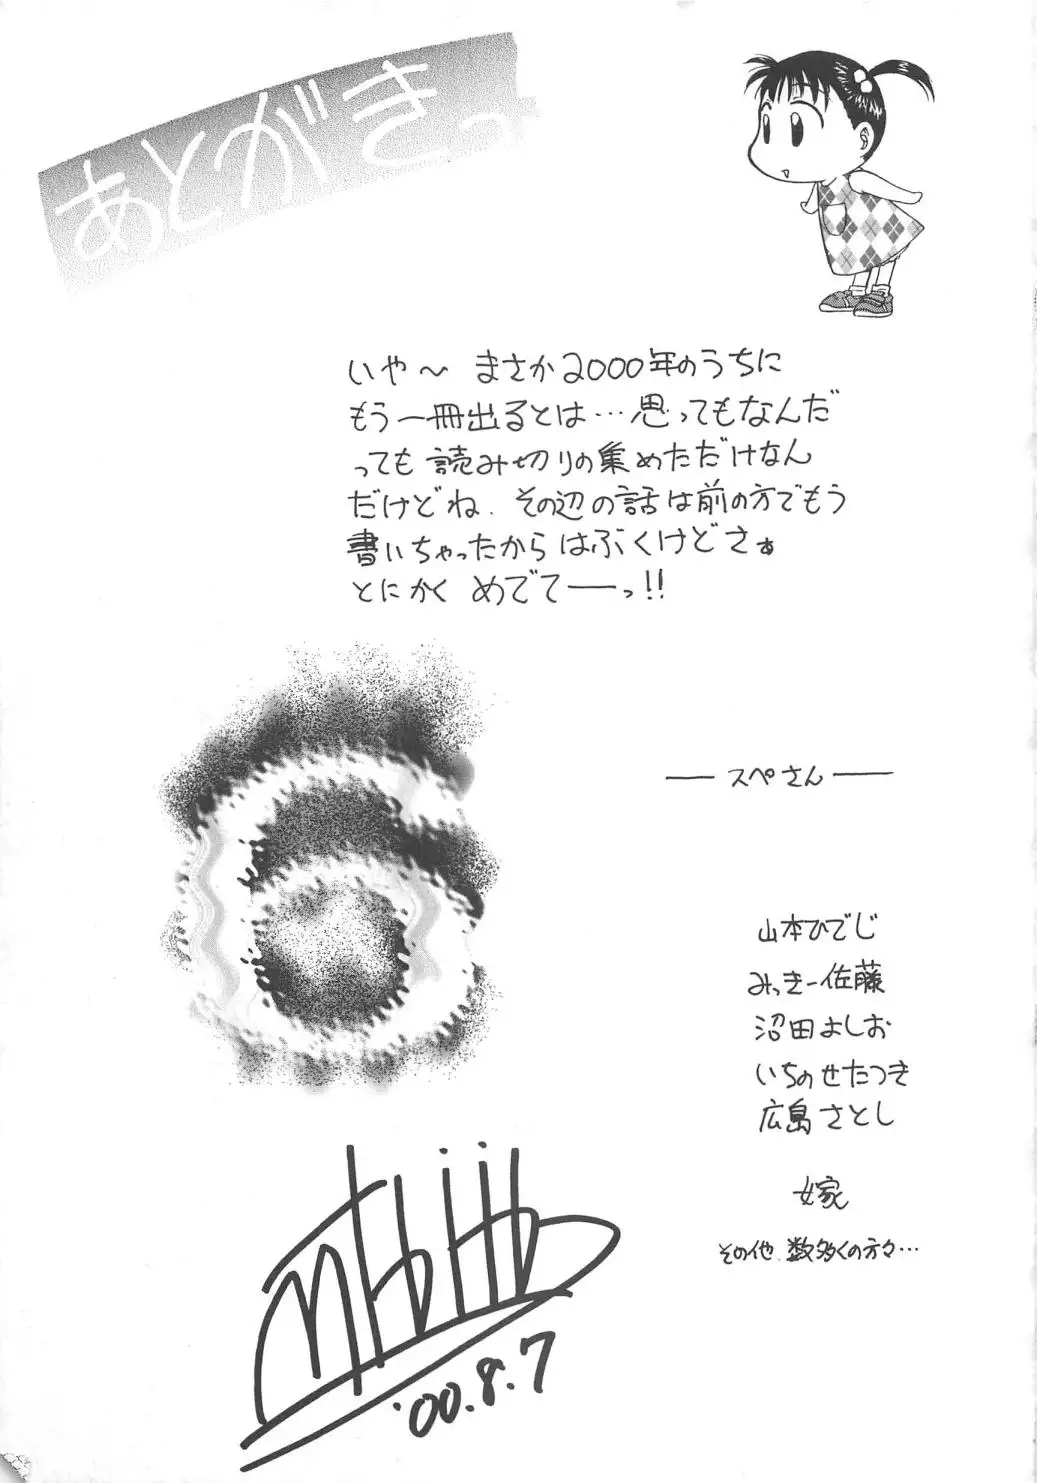 あとがきっ
いや〜 まさか2000年のうちに
もう一冊出るとは…思ってもなんだ
っても 読み切りの集めただけなん
だけどね. その辺の話は前の方でもう
書いちゃったからはぶくけどさぁ
とにかく めでてーーっ!!
6
── スペさん ──
山本ひでじ
みっきー佐藤
沼田よしお
いちのせたつき
広島さとし
嫁
その他. 数多くの方々…
'00.8.7